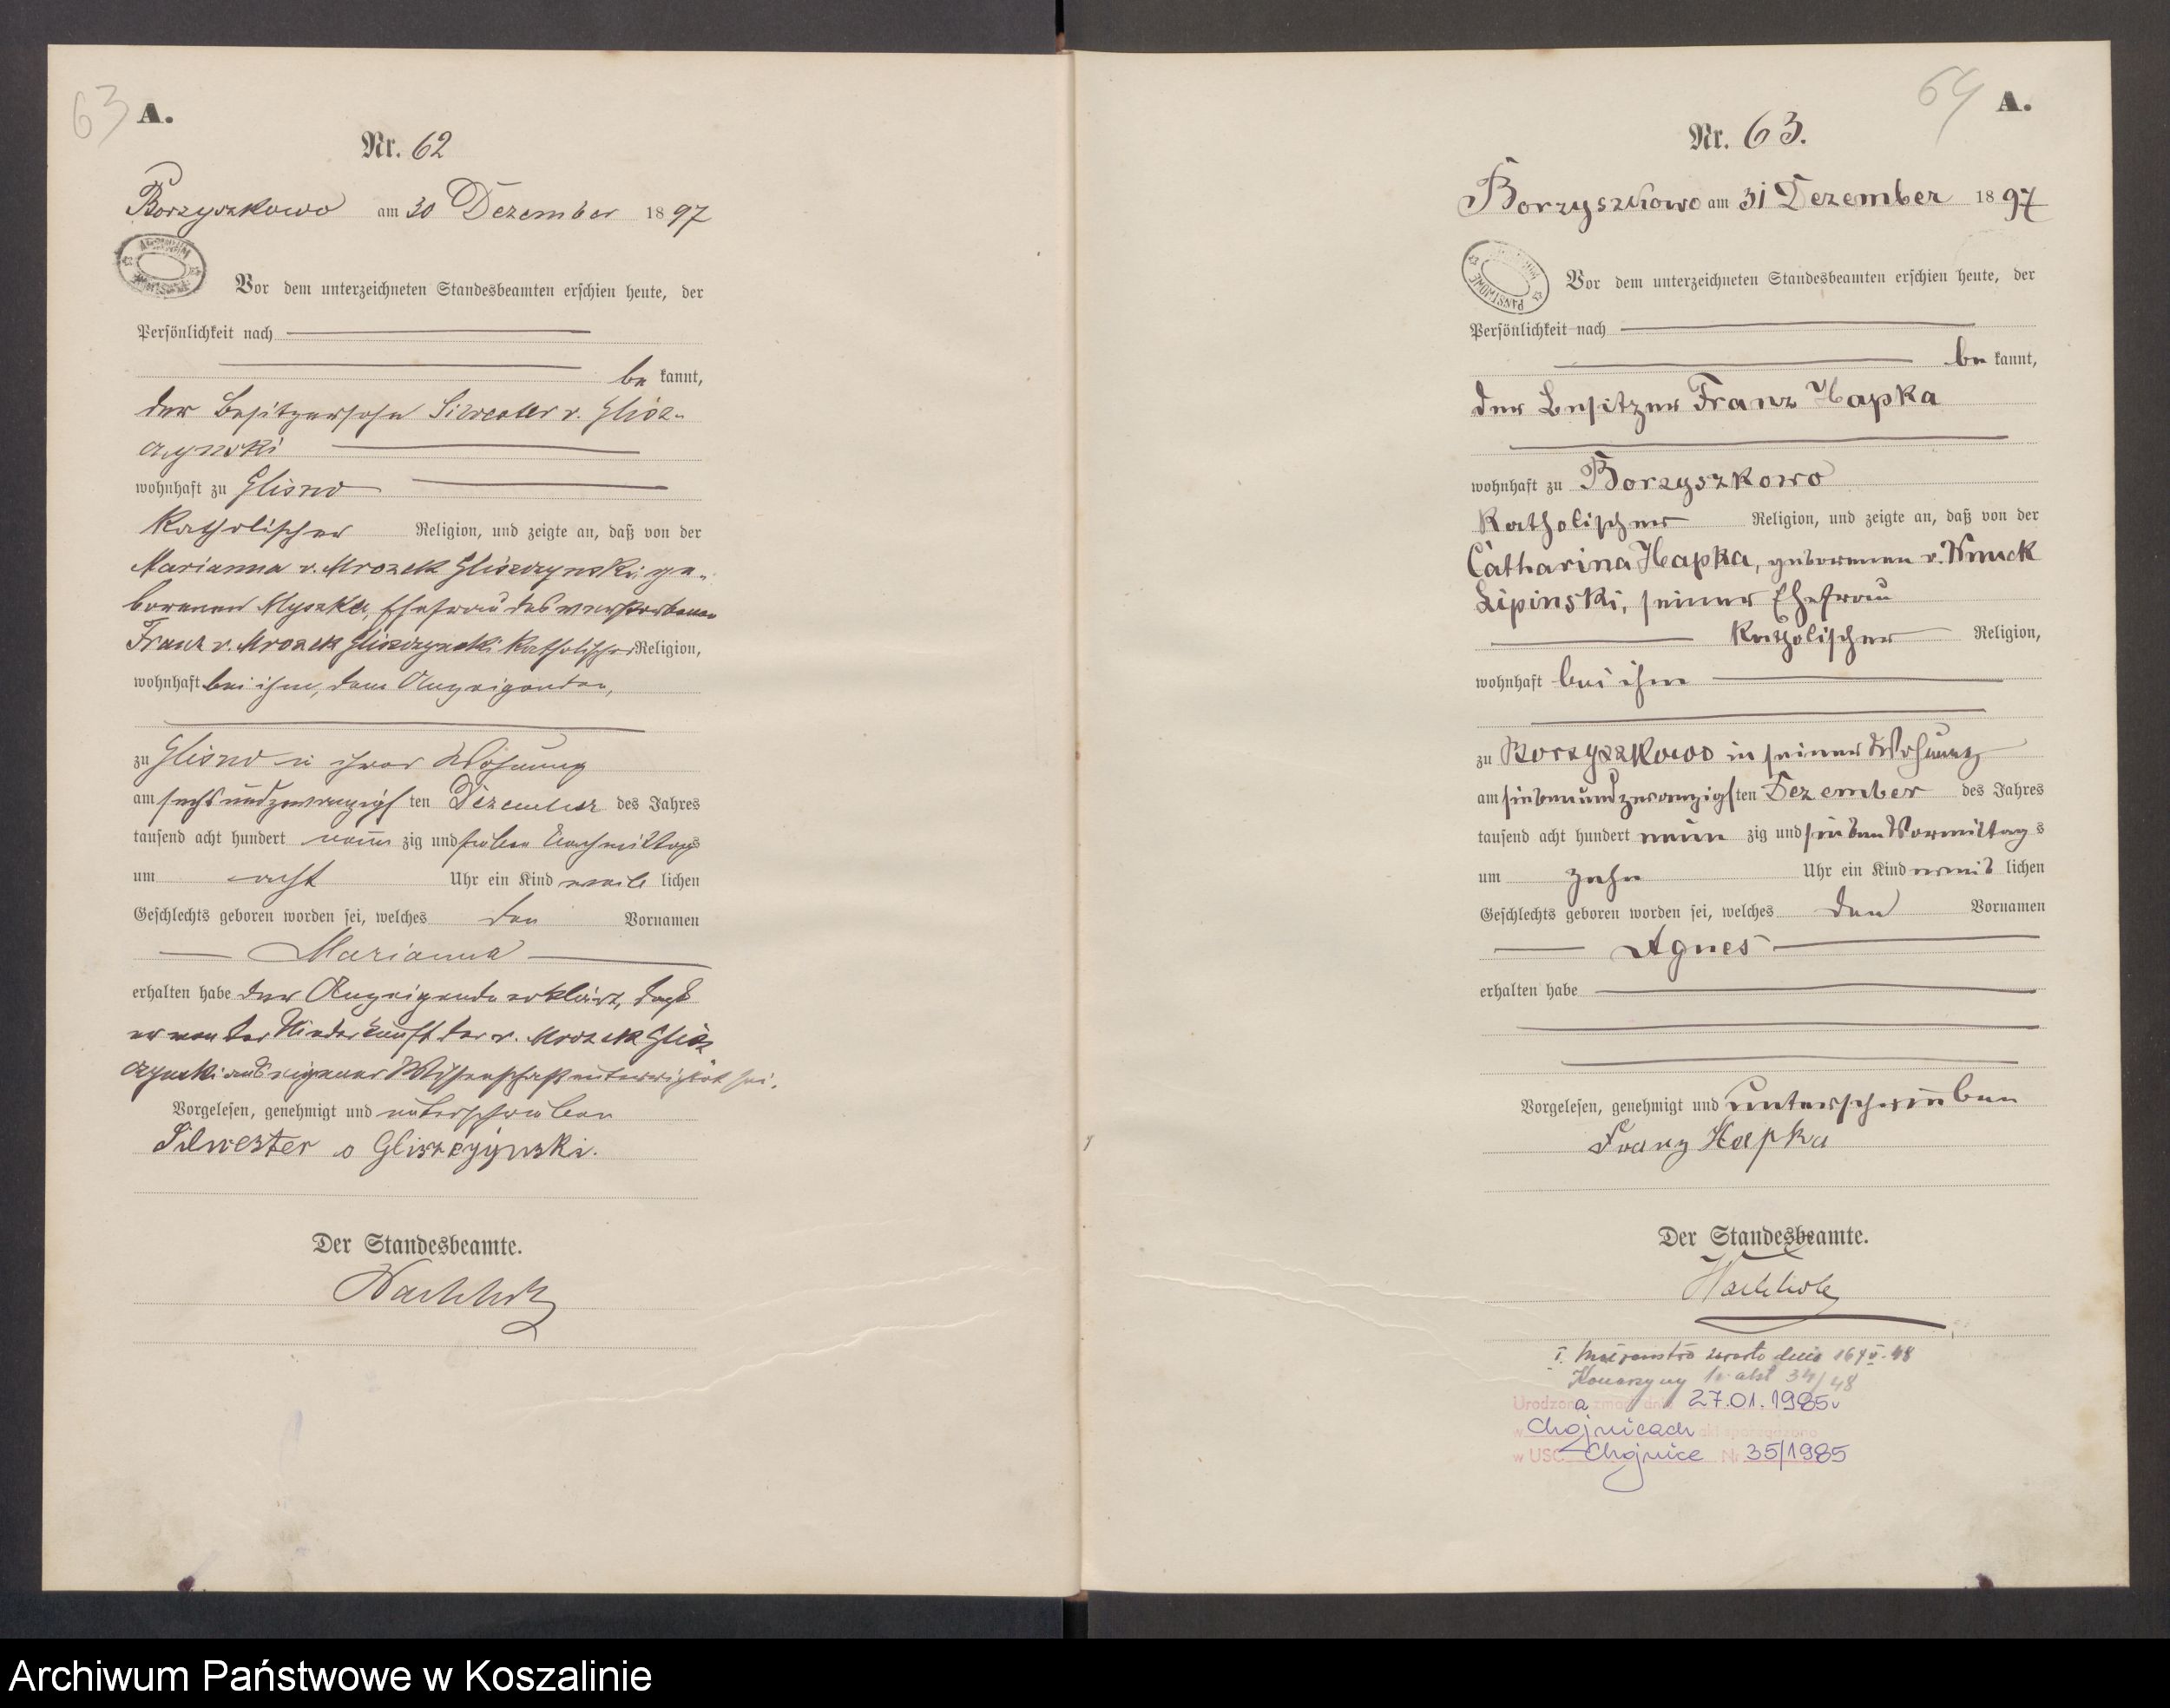 63 A.
Nr. 62
Borzyszkowo am 30 Dezember 1897
Vor dem unterzeichneten Standesbeamten erschien heute, der
Persönlichkeit nach
be kannt,
der Besitzersohn Silvester v. Glisz-
czynski
wohnhaft zu Glisno
katholischer Religion, und zeigte an, daß von der
Marianna v. Mrozek Gliszczynski, ge-
borenen Myszka, Ehefrau des verstorbenen
Franz v. Mrozek Gliszczynski katholischer Religion,
wohnhaft bei ihm, dem Anzeigenden,
zu Glisno in ihrer Wohnung
am sechsundzwanzigsten Dezember des Jahres
tausend acht hundert neun zig und sieben Nachmittags
um acht Uhr ein Kind weib lichen
Geschlechts geboren worden sei, welches den Vornamen
Marianna
erhalten habe der Anzeigende erklärt, daß
er von der Niederkunft der v. Mrozek Glisz
czynski aus eigener Wissenschaft unterrichtet sei.
Vorgelesen, genehmigt und unterschrieben
Silwester v Gliszczynski.
Der Standesbeamte.
Wachholz
64 A.
Nr. 63.
Borzyszkowo am 31 Dezember 1897
PAŃSTWOWE
Vor dem unterzeichneten Standesbeamten erschien heute, der
Persönlichkeit nach
be kannt,
der Besitzer Franz Hapka
wohnhaft zu Borzyszkowo
katholischer Religion, und zeigte an, daß von der
Catharina Hapka, geborenen v. Wnuck
Lipinski, seiner Ehefrau
katholischer Religion,
wohnhaft bei ihm
zu Borzyszkowo in seiner Wohnung
am siebenundzwanzigsten Dezember des Jahres
tausend acht hundert neun zig und sieben Vormittag s
um zehn Uhr ein Kind weib lichen
Geschlechts geboren worden sei, welches den Vornamen
Agnes
erhalten habe
Vorgelesen, genehmigt und unterschrieben
Franz Hapka
Der Standesbeamte.
Wachholz
I. Małżeństwo zawarto dnia 48
Konarzyny Nr akt 34/48
Urodzona zmarła dnia 27.01.1985
w Chojnicach akt sporządzono
w USC Chojnice Nr 35/1985
Archiwum Państwowe w Koszalinie